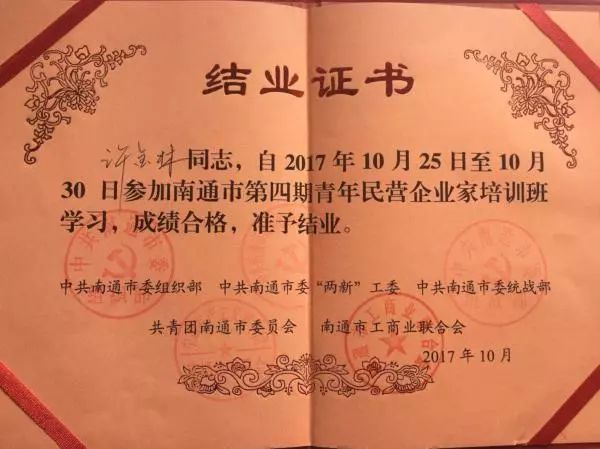 结业证书
许金林同志，自2017年10月25日至10月
30日参加南通市第四期青年民营企业家培训班
学习，成绩合格，准予结业。
中共南通市委组织部 中共南通市委“两新”工委 中共南通市委统战部
共青团南通市委员会 南通市工商业联合会
2017年10月